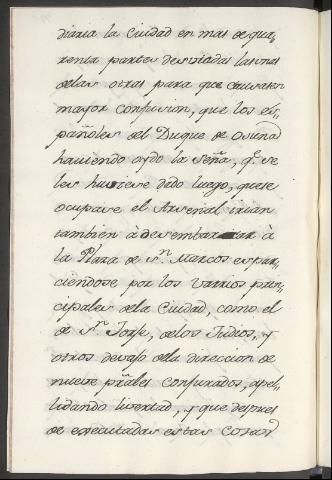 diaria la Ciudad en mas de qua,
renta partes desviadas las unas
de las otras para que causasen
mayor confusion, que los es,,
pañoles del Duque de Osuna
haviendo oydo la seña, q.e se
les huviese dado luego, que se
ocupase el Arsenal irian
tambien à desembarcar à
la Plaza de Sn. Marcos espar,
ciendose por los varrios prin,
cipales de la Ciudad, como el
de Sn. Jorje, de los Judios, y
otros devajo de la direccion de
nueve pñales conjurados, apel,,
lidando livertad, y que despues
de executadas estas cosas